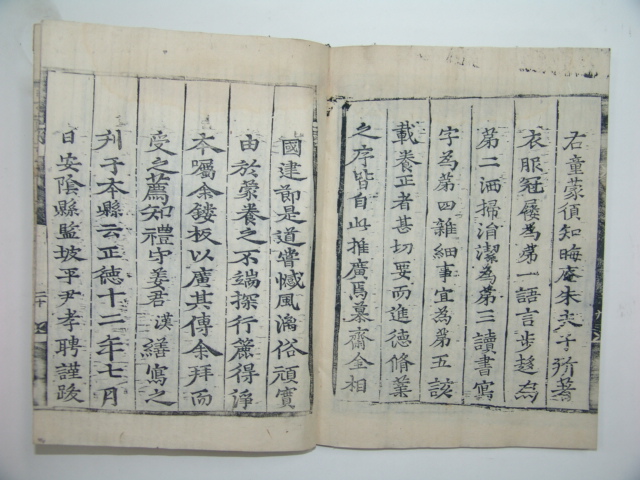 右童蒙須知晦庵朱夫子所著
衣服冠屨為第一語言步趍為
第二洒掃涓潔為第三讀書寫
字為第四雜細事宜為第五該
載養正者甚切要而進德脩業
之序皆自此推廣焉慕齋金相
國建節是道嘗憾風漓俗頑實
由於蒙養之不端探行篋得淨
本囑余鋟板以廣其傳余拜而
受之薦知禮守姜君漢繕寫之
刋于本縣云正徳十二年七月
日安陰縣監坡平尹孝聘謹跋